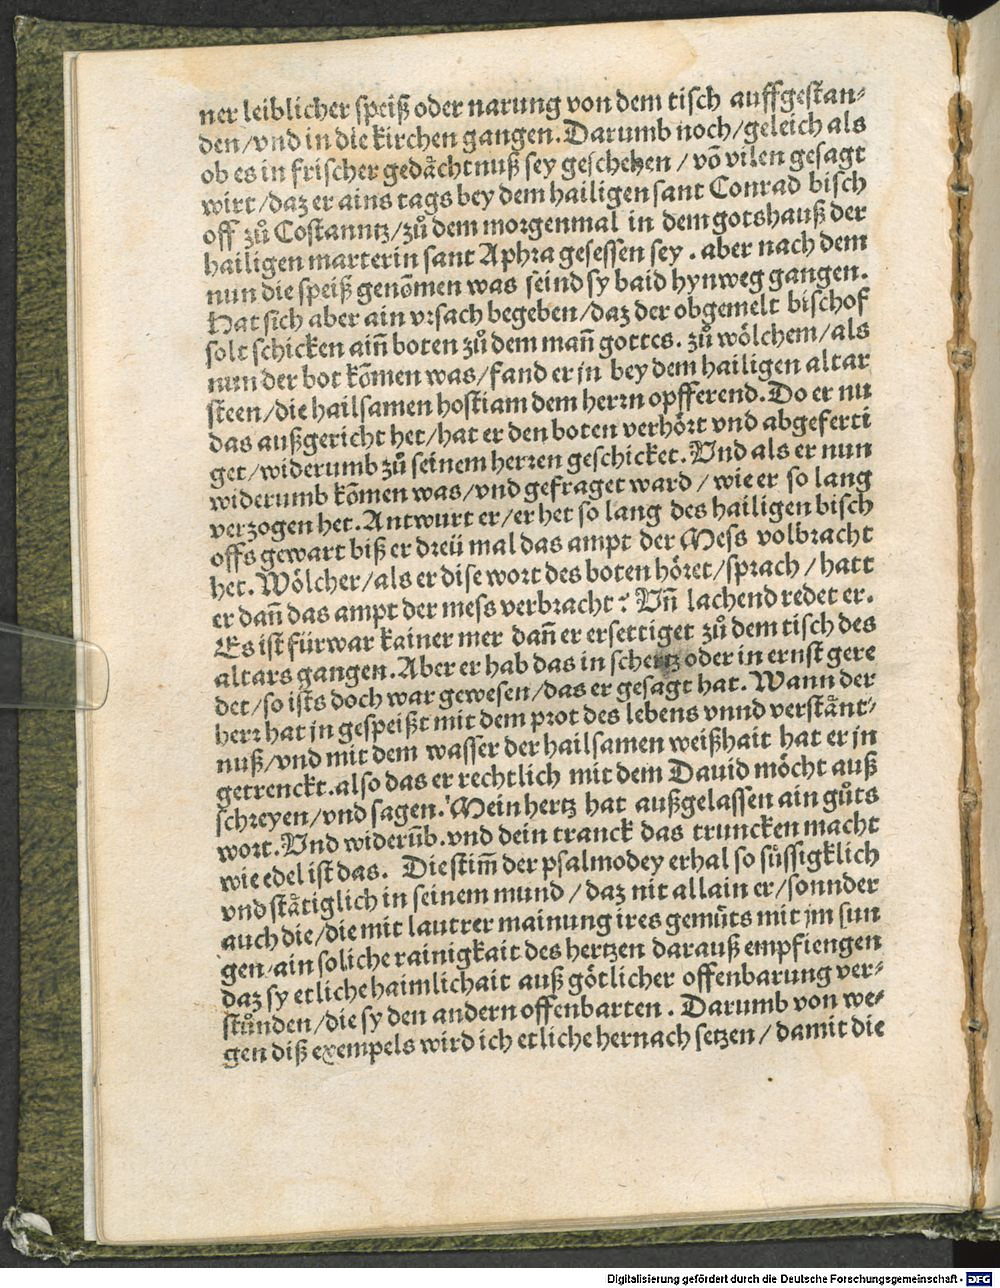 ner leiblicher speiß oder narung von dem tisch auffgestan⸗
den/vnd in die kirchen gangen. Darumb noch/geleich als
ob es in frischer gedaͤchtnuß sey geschehen / võ vilen gesagt
wirt/daz er ains tags bey dem hailigen sant Conrad bisch
off zuͦ Costanntz/zuͦ dem morgenmal in dem gotshauß der
hailigen marterin sant Aphra gesessen sey . aber nach dem
nun die speiß genõmen was seind sy baid hynweg gangen.
Hat sich aber ain vrsach begeben/daz der obgemelt bischof
solt schicken aiñ boten zuͦ dem mañ gottes. zuͦ woͤlchem/als
nun der bot kõmen was/fand er jn bey dem hailigen altar
steen/die hailsamen hostiam dem herrn opfferend. Do er nu
das außgericht het/hat er den boten verhoͤrt vnd abgeferti
get/widerumb zuͦ seinem herren geschicket. Vnd als er nun
widerumb kõmen was/vnd gefraget ward / wie er so lang
verzogen het. Antwurt er/er het so lang des hailigen bisch
offs gewart biß er dreü mal das ampt der Mess volbracht
het. Woͤlcher/als er dise wort des boten hoͤret/sprach / hatt
er dañ das ampt der mess verbracht? Vñ lachend redet er.
Es ist fürwar kainer mer dañ er ersettiget zuͦ dem tisch des
altars gangen. Aber er hab das in schertz oder in ernst gere
det/so ists doch war gewesen/das er gesagt hat. Wann der
herr hat jn gespeißt mit dem prot des lebens vnnd verstaͤnt⸗
nuß/vnd mit dem wasser der hailsamen weißhait hat er jn
getrenckt. also das er rechtlich mit dem Dauid moͤcht auß
schreyen/vnd sagen. Mein hertz hat außgelassen ain guͦts
wort. Vnd widerũb. vnd dein tranck das truncken macht
wie edel ist das. Die stim̃ der psalmodey erhal so suͤssigklich
vnd staͤtiglich in seinem mund / daz nit allain er/sonnder
auch die/die mit lautrer mainung ires gemuͤts mit jm sun
gen/ain soliche rainigkait des hertzen darauß empfiengen
daz sy etliche haimlichait auß goͤtlicher offenbarung ver⸗
stuͦnden/die sy den andern offenbarten . Darumb von we⸗
gen diß exempels wird ich etliche hernach setzen / damit die
Digitalisierung gefördert durch die Deutsche Forschungsgemeinschaft - DFG